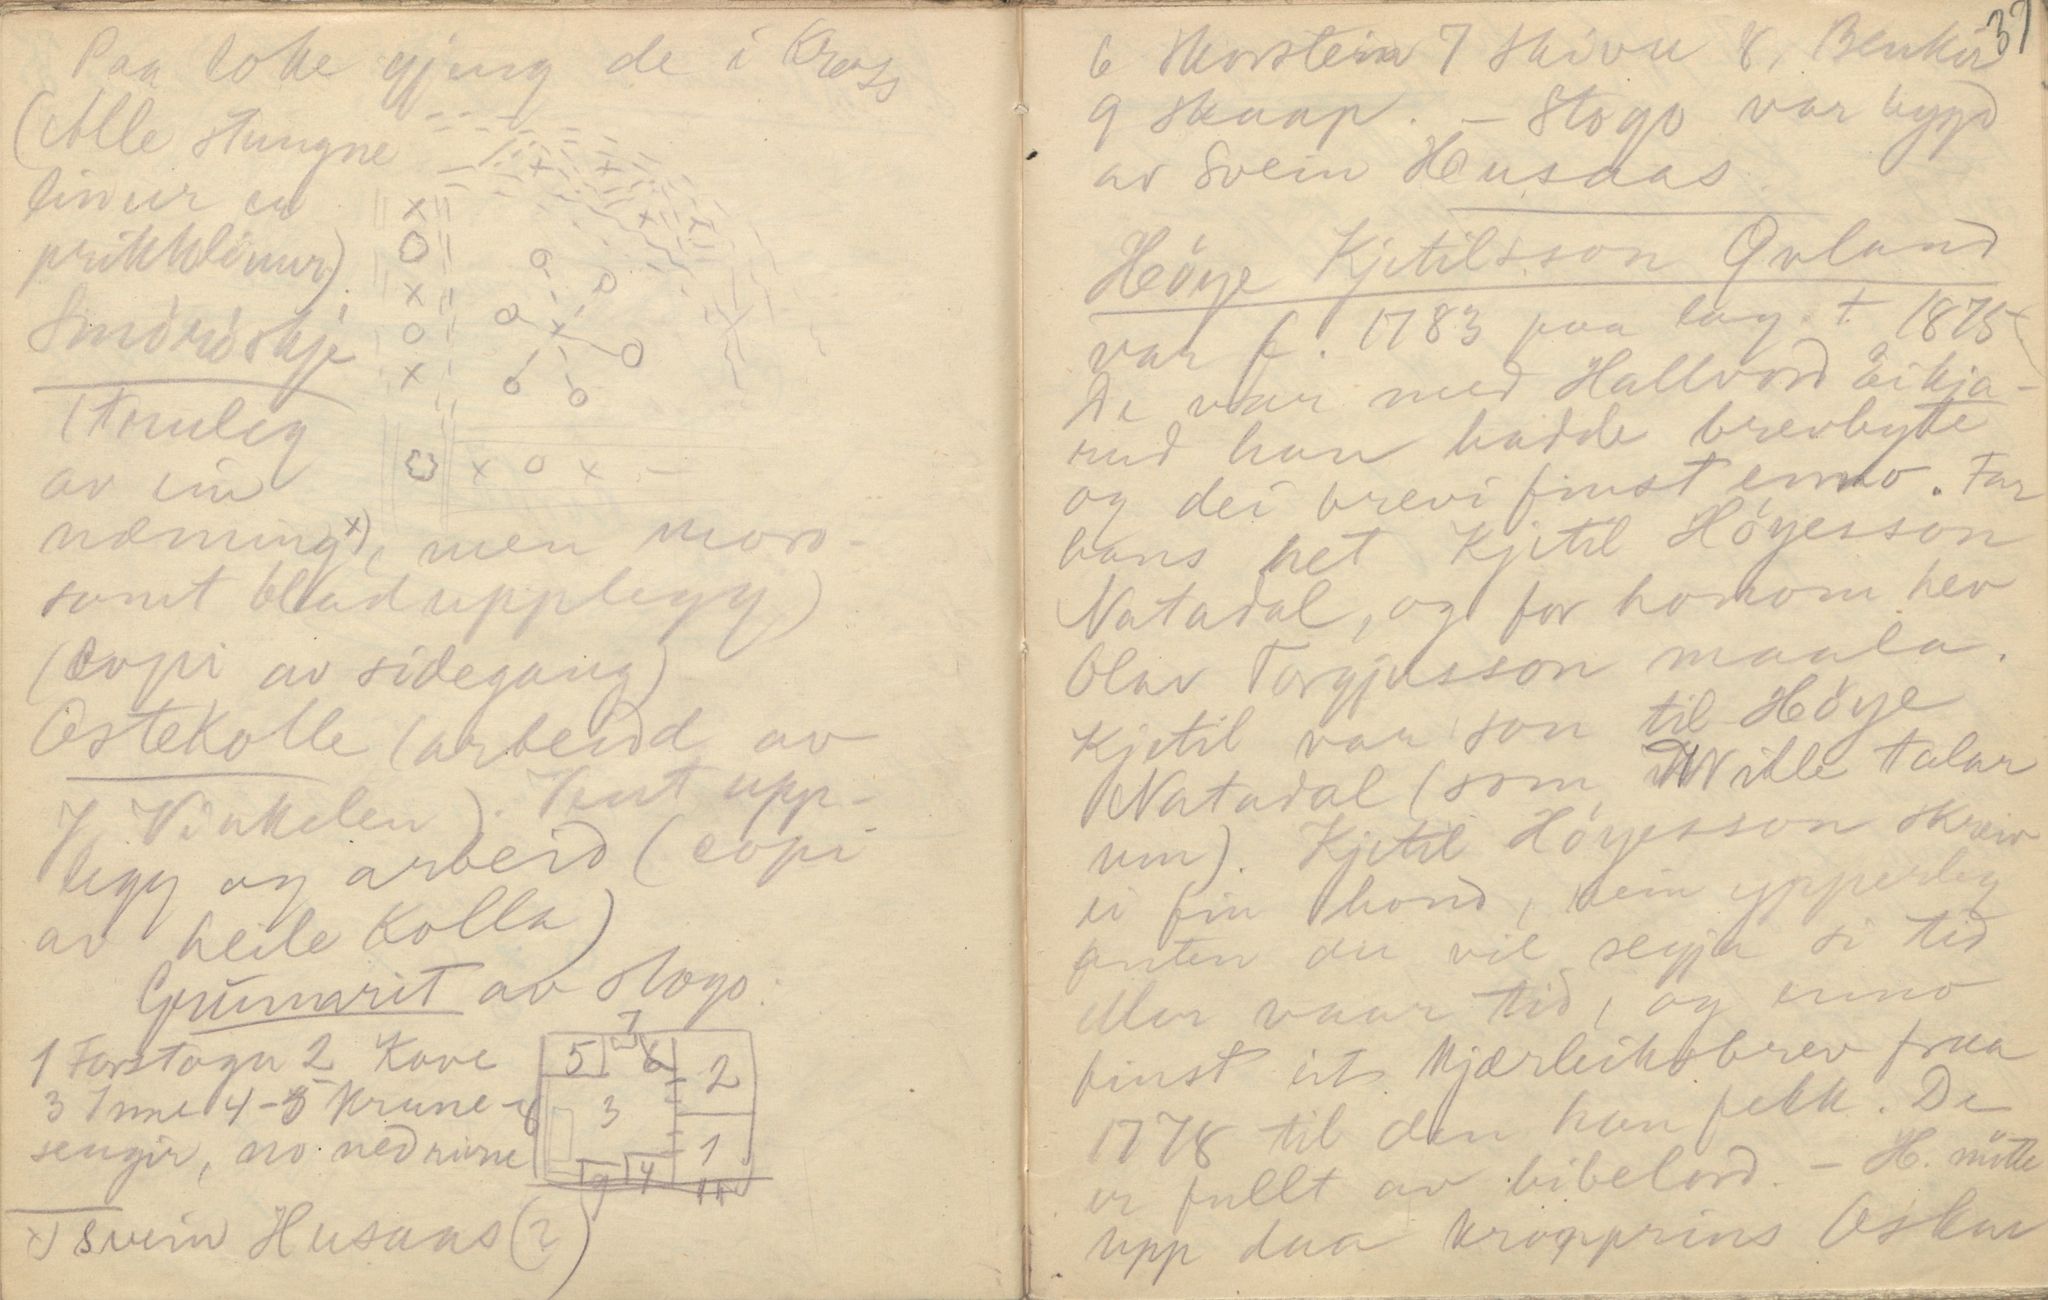 Paa loke gjeng de i Kross
(Alle stungne
linur er
prikklinur)
Smöröskje
(Truleg
av ein
næming x), men moro-
samt bladupplegg)
(Copi av sidegang)
Ostekolle (arbeidd av
J. Vinkelen). Fint upp-
legg og arbeid (copi
av heile Kolla)
Grunnrit av stogo.
1 Forstogu 2 Kove
3 Inne 4-5 Krune-
sengir, no nedrivne
5 7 6 2
3
1
9 4
x) Svein Husaas (?)
37
6 Skorstein 7 skivu 8, Benkir
9 skaap. – Stogo var bygd
av Svein Husaas.
Höye Kjetilsson Qvland
var f. 1783 paa lag. † 1875
De var med Hallvord Eikja-
rud han hadde brevbyte
og dei brevi finst enno. Far
hans het Kjetil Höyesson
Natadal, og for honom hev
Olav Torgjusson maala.
Kjetil var son til Höye
Natadal (som Wille talar
um). Kjetil Höyesson skreiv
ei fin hond, rein ypperleg
anten du vil segja si tid
eller vaar tid, og enno
finst eit Kjærleiksbrev fraa
1778 til den han fekk. De
er fullt av bibelord. – H. mötte
upp daa kronprins Oskar